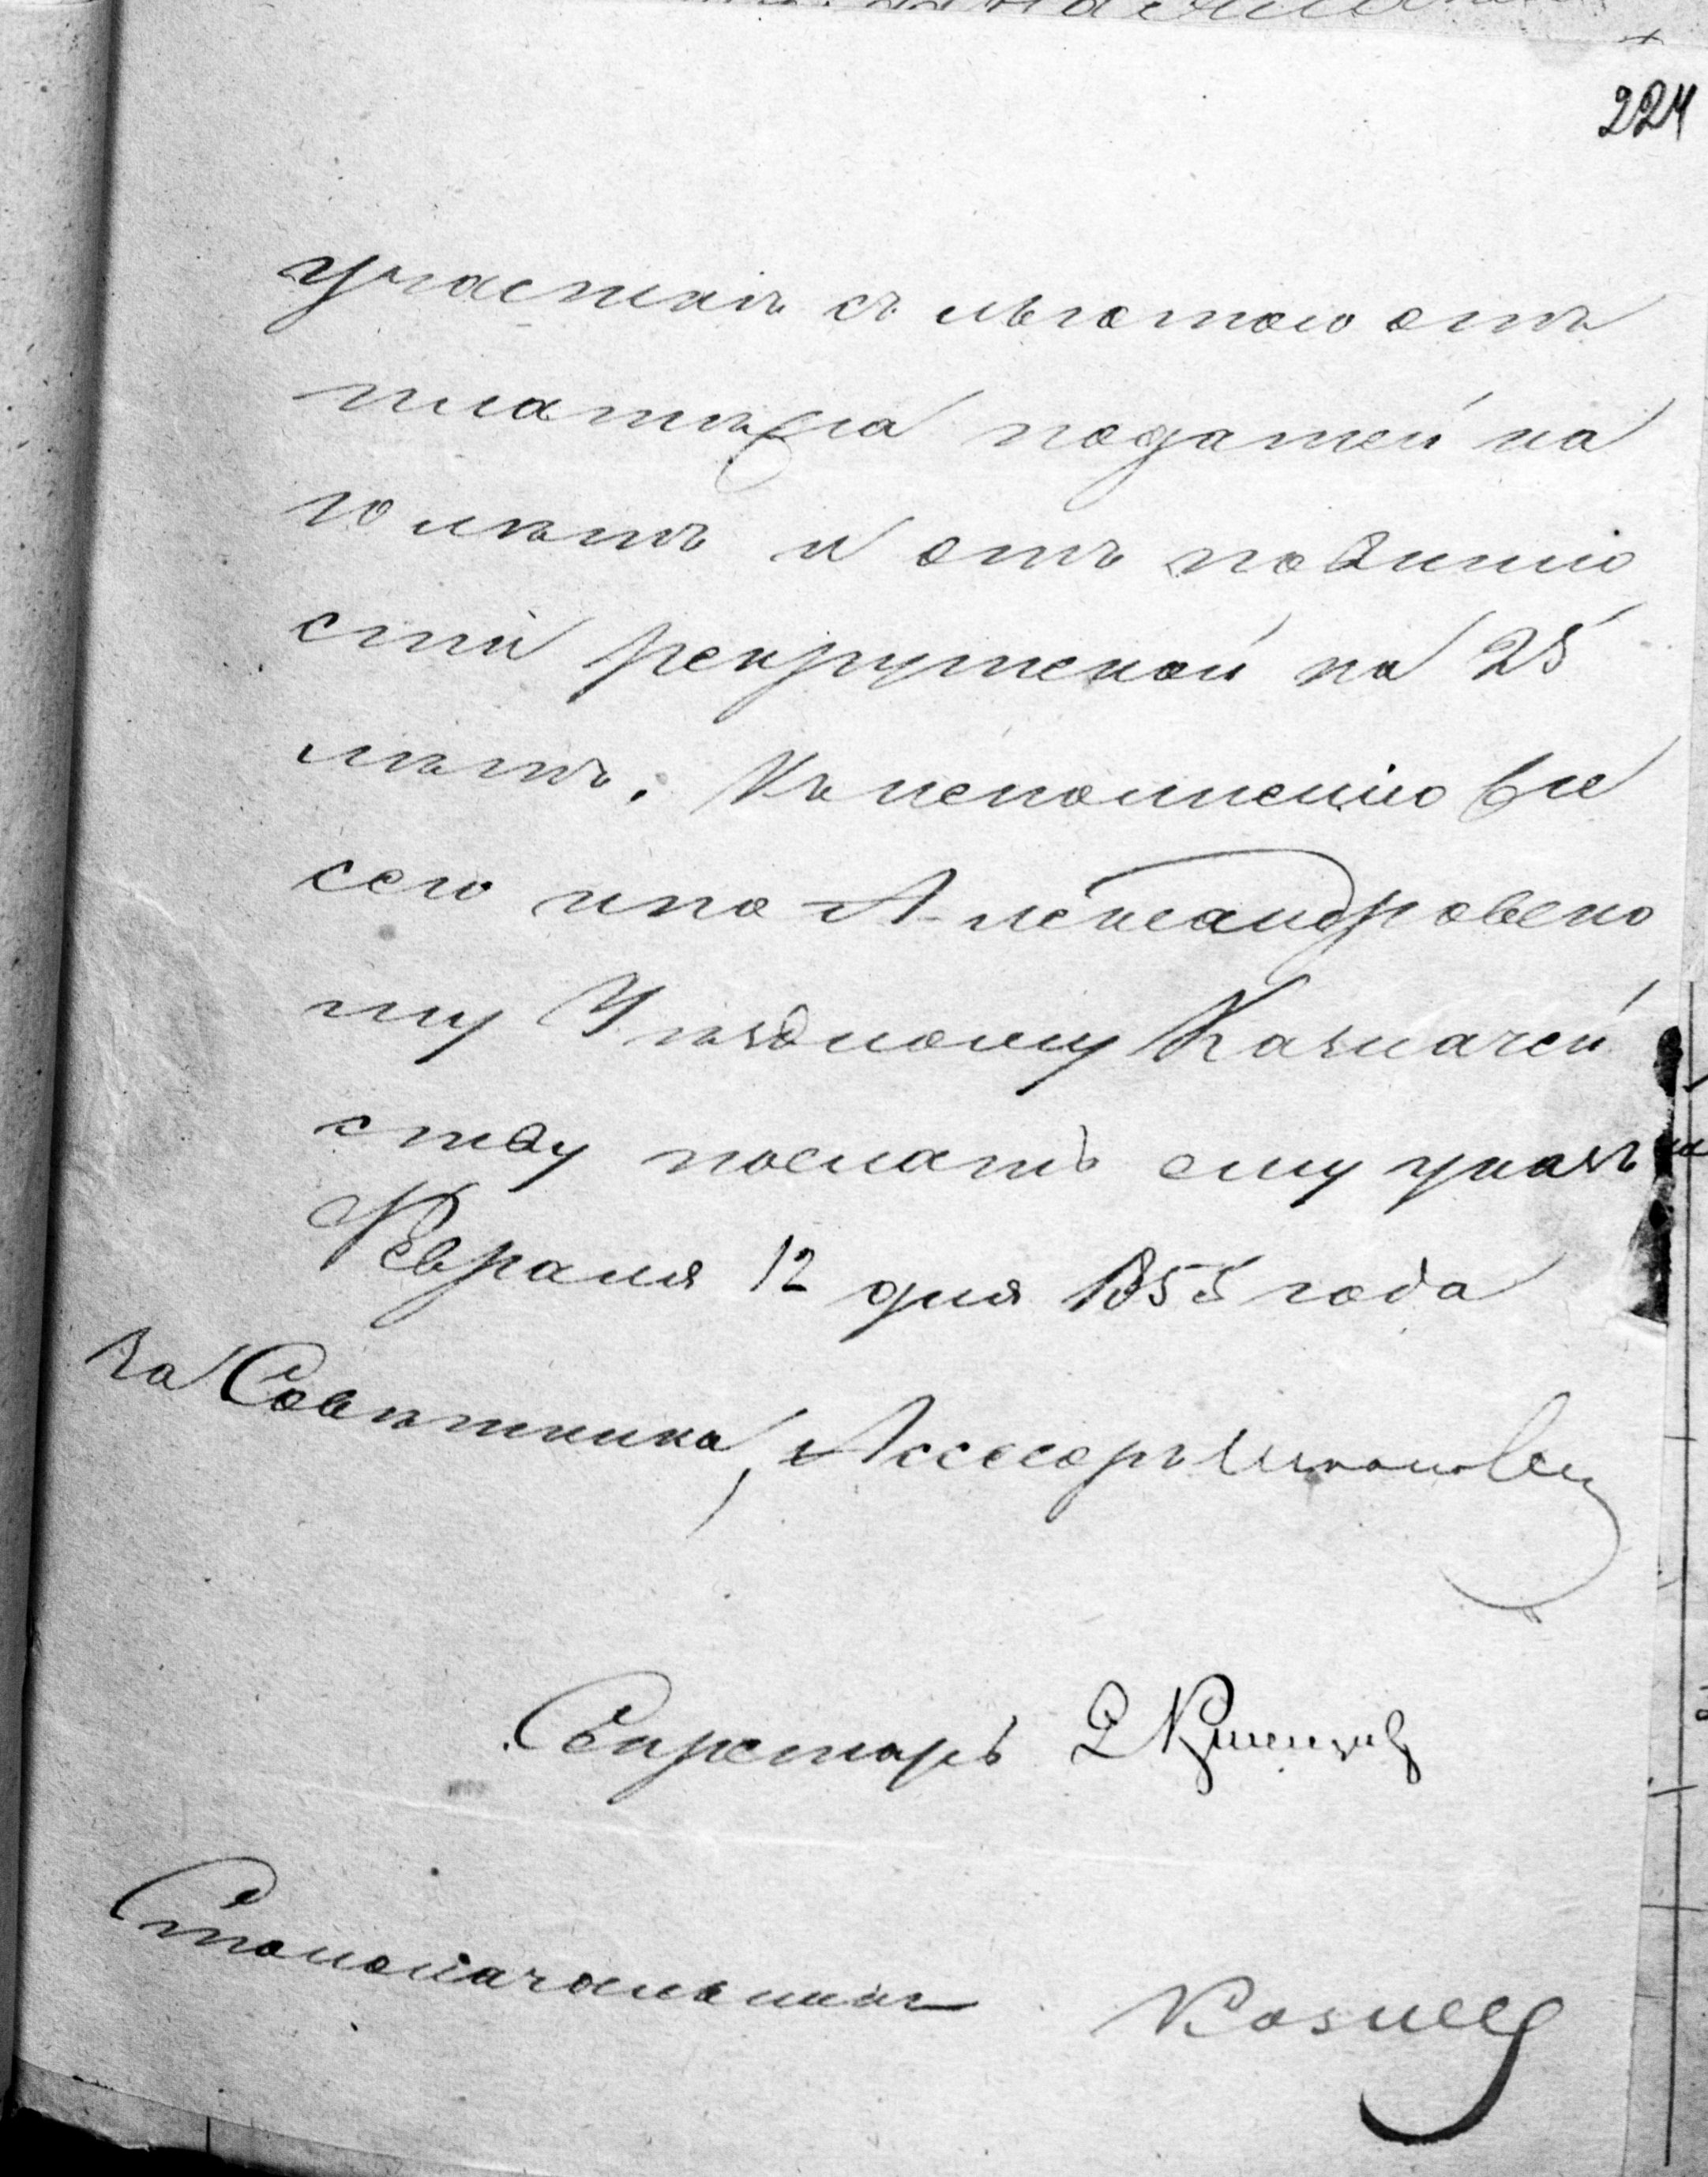 224
участкѣ съ льготою отъ
платежа податей на
10 лѣтъ и отъ повинно
сти рекрутской на 25
лѣтъ. Къ исполненію Вы
сего и по Александровско
му Уѣздному Казначей
ству послать ему указъ
Февраля 12 дня 1855 года
За Совѣтника, Ассесоръ
Секретарь
Столоначальникъ